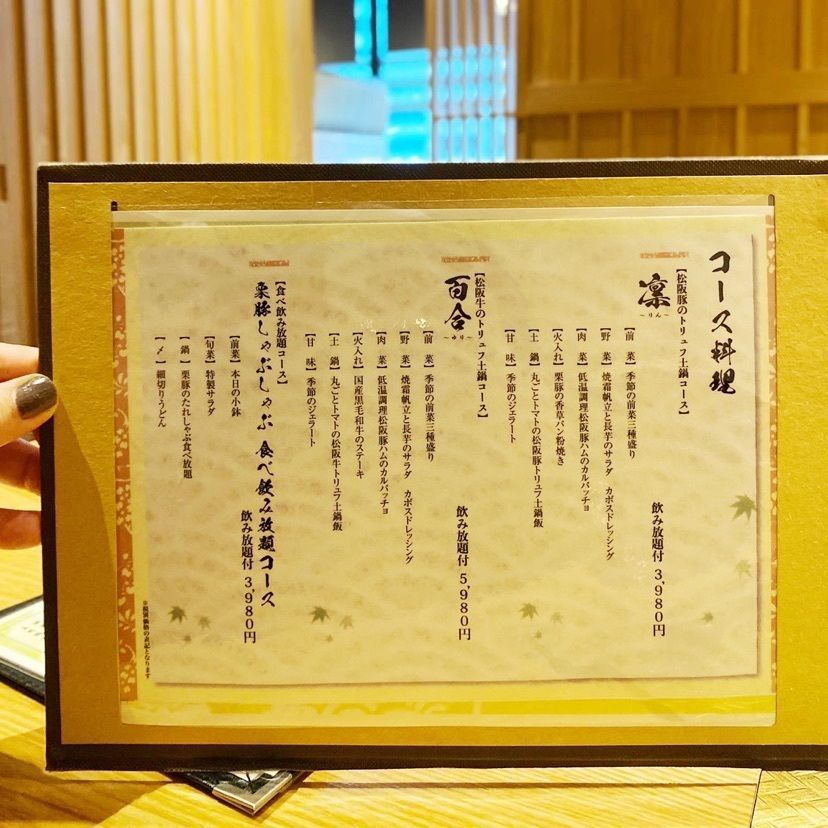 コース料理
【松阪豚のトリュフ土鍋コース】
凛
～りん～
【前　菜】季節の前菜三種盛り
【野　菜】焼霜帆立と長芋のサラダ　カボスドレッシング
【肉　菜】低温調理松阪豚ハムのカルパッチョ
【火入れ】栗豚の香草パン粉焼き
【土　鍋】丸ごとトマトの松阪豚トリュフ土鍋飯
【甘　味】季節のジェラート
飲み放題付 3,980円
【松阪牛のトリュフ土鍋コース】
百合
～ゆり～
【前　菜】季節の前菜三種盛り
【野　菜】焼霜帆立と長芋のサラダ　カボスドレッシング
【肉　菜】低温調理松阪豚ハムのカルパッチョ
【火入れ】国産黒毛和牛のステーキ
【土　鍋】丸ごとトマトの松阪牛トリュフ土鍋飯
【甘　味】季節のジェラート
飲み放題付 5,980円
【食べ飲み放題コース】
栗豚しゃぶしゃぶ 食べ飲み放題コース
【前菜】本日の小鉢
【旬菜】特製サラダ
【鍋】栗豚のたれしゃぶ食べ放題
【〆】細切りうどん
飲み放題付 3,980円
※税別価格の表記となります